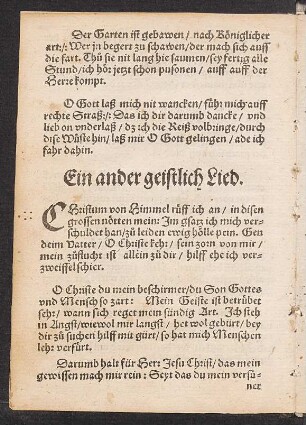 Der Garten ist gebawen / nach Königlicher
art:/: Wer jn begert zu schawen/der mach sich auff
die fart. Thů sie nit lang hie saumen/sey fertig alle
Stund/ich hör jetzt schon pusonen / auff auff der
Herre kompt.
O Gott laß mich nit wancken/führ mich auff
rechte Straß:/: Das ich dir darumb dancke / vnd
lieb on vnderlaß / dz ich die Reiß volbringe/durch
dise Wüste hin/laß mir O Gott gelingen / ade ich
fahr dahin.
Ein ander geistlich Lied.
CHristum von Himmel rüff ich an / in disen
grossen nötten mein: Im gsatz ich mich ver-
schuldet han/zů leiden ewig hölle pein. Gen
deim Vatter / O Christe kehr / sein zorn von mir /
mein zůflucht ist allein zů dir / hilff ehe ich ver-
zweiffel schier.
O Christe du mein beschirmer/du Son Gottes
vnd Mensch so zart : Mein Geiste ist betrübet
sehr / wann sich reget mein sündig Art. Ich steh
in Angst/wiewol mir langst / het wol gebürt/bey
dir zů suchen hilff mit gürt/ so hat mich Menschen
lehr verfürt.
Darumb halt für Herr Jesu Christ/das mein
gewissen mach mir rein: Seyt das du mein versü-
ner